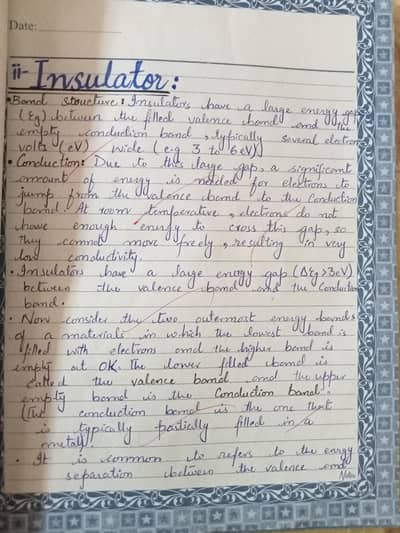 Date:
ii- Insulator:
• Band structure: Insulators have a large energy gap
(Eg) between the filled valence band and the
empty conduction band, typically several electron
volts (eV) wide (e.g 3 to 6eV)
• Conduction: Due to this large gap, a significant
amount of energy is needed for electrons to
jump from the valence band to the conduction
band. At room temperature, electrons do not
have enough energy to cross this gap, so
they cannot move freely, resulting in very
low conductivity.
• Insulators have a large energy gap (ΔEg>3eV)
between the valence band and the conduction
band.
• Now consider the two outermost energy bands
of a materials in which the lowest band is
filled with electrons and the higher band is
empty at OK. The lower filled band is
called the valence band and the upper
empty band is the Conduction band.
(The conduction band is the one that
is typically partially filled in a
metal)
• It is common to refers to the enrgy
separation between the valence and